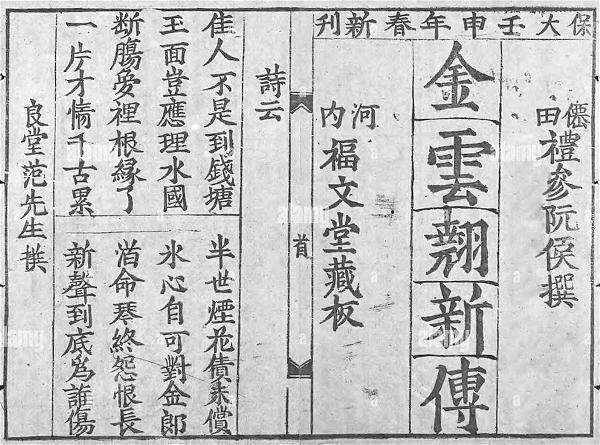 保大壬申年春新刊
僊田禮參阮侯撰
金雲翹新傳
河内福文堂藏板
首
詩云
佳人不是到錢塘
半世煙花債未償
玉面豈應埋水國
氷心自可對金郎
断腸夢裡根縁了
薄命琴終怨恨長
一片才情千古累
新聲到底為誰傷
良堂范先生撰
alamy